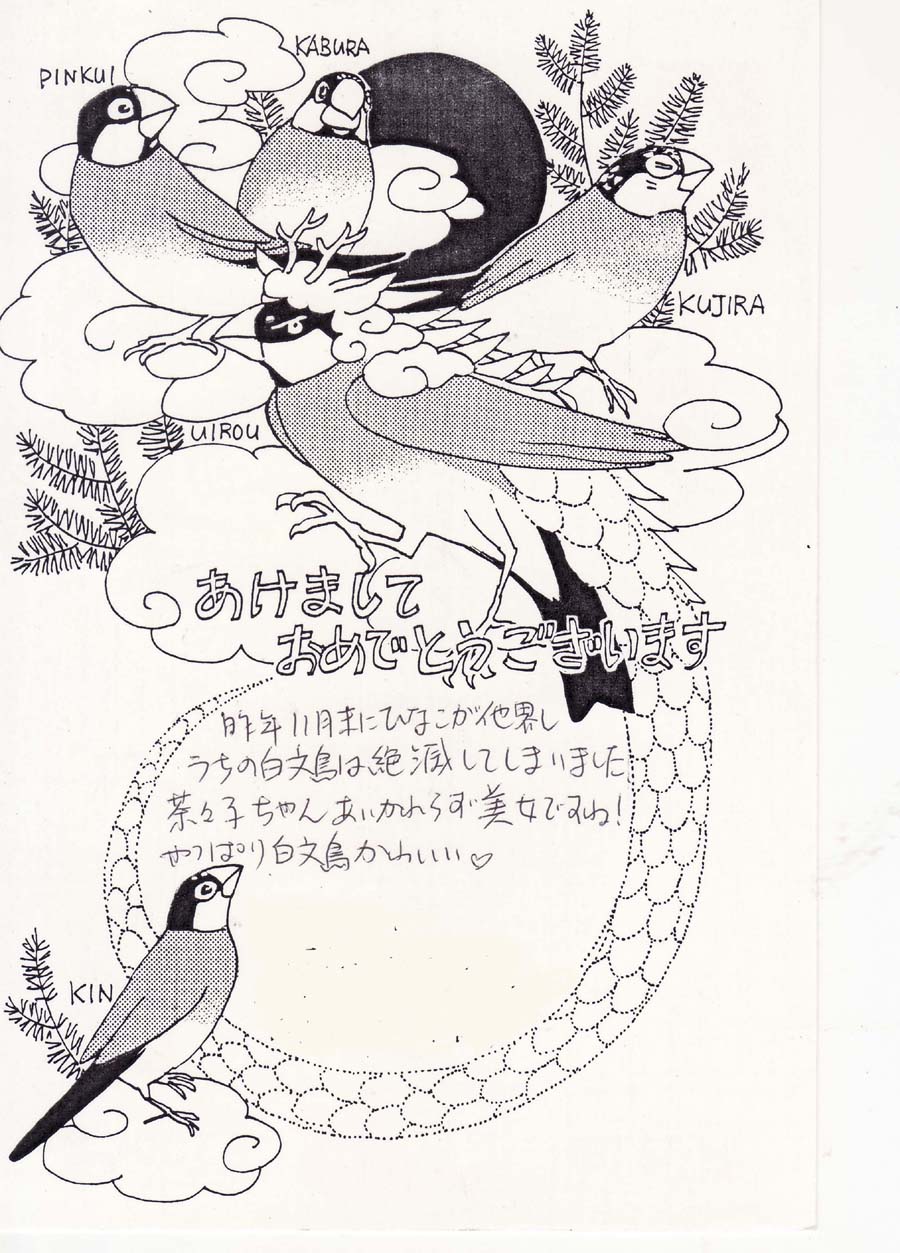 KABURA
PINKUI
KUJIRA
UIROU
あけまして
おめでとうございます
昨年11月末にひなこが他界し
うちの白文鳥は絶滅してしまいました
茶々子ちゃんあいかわらず美女ですね!
やっぱり白文鳥かわいい♡
KIN